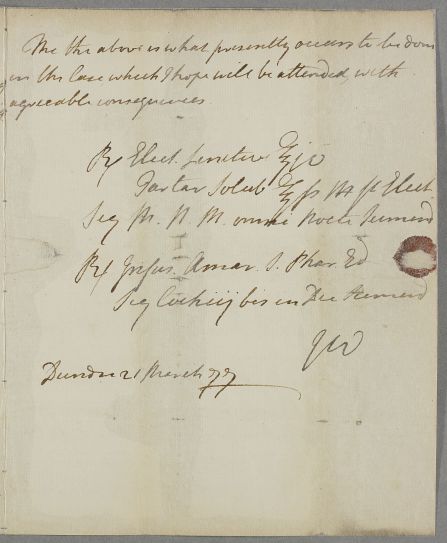 Me the above is what presently occurs to be done
in this Case which I hope will be attended with
agreeable consequences.
Rx Elect. Lenitiv ℥iv
Tartar Solub ℥ss M ft Elect
Sig N. M. omni Nocte Sumend
Rx Infus. Amar. S. Phar. Ed
Sig Coch iij bis in Die Sumend
Dundee 21 March 77